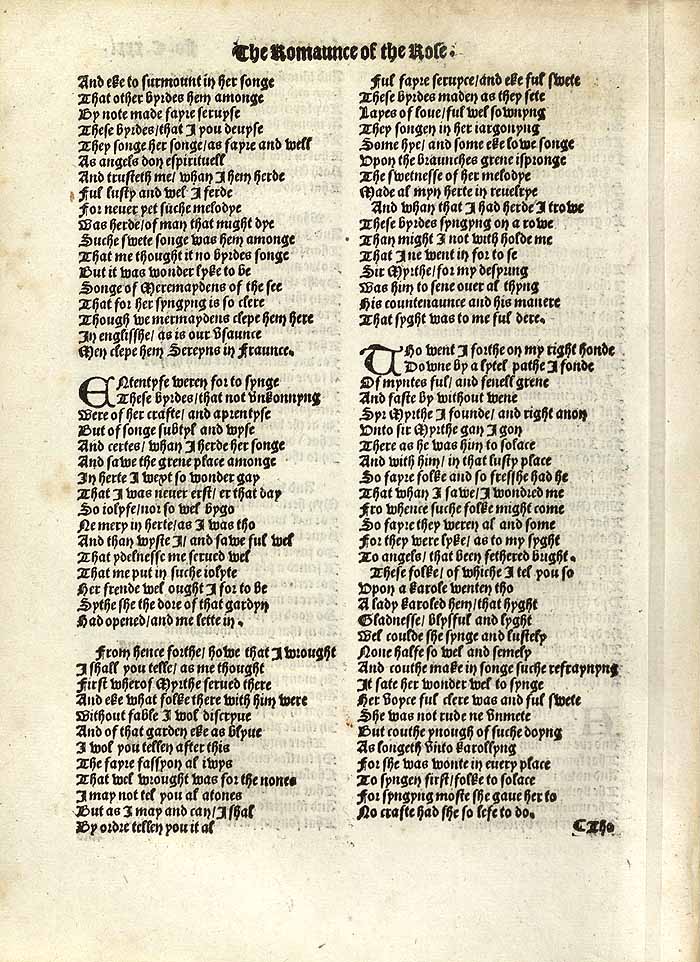 The Romaunce of the Rose.
And eke to surmount in her songe
That other byrdes hem amonge
By note made fayre seruyse
These byrdes/ that I you deuyse
They songe her songe/ as fayre and well
As angels don espirituell
And trusteth me/ whan I hem herde
Ful lusty and wel I ferde
For neuer yet suche melodye
Was herde/ of man that might dye
Suche swete songe was hem amonge
That me thought it no byrdes songe
But it was wonder lyke to be
Songe of Meremaydens of the see
That for her syngyng is so clere
Though we mermaydens clepe hem here
In englisshe/ as is our vsaunce
Men clepe hem Sereyns in Fraunce.
ENtentyfe weren for to synge
These byrdes/ that not vnkonnyng
Were of her crafte/ and aprentyse
But of songe subtyl and wyse
And certes/ whan I herde her songe
And sawe the grene place amonge
In herte I wext so wonder gay
That I was neuer erst/ er that day
So iolyfe/ nor so wel bygo
Ne mery in herte/ as I was tho
And than wyste I/ and sawe ful wel
That ydelnesse me serued wel
That me put in suche iolyte
Her frende wel ought I for to be
Sythe she the dore of that gardyn
Had opened/ and me lette in.
From hence forthe/ howe that I wrought
I shall you telle/ as me thought
First wherof Myrthe serued there
And eke what folke there with him were
Without fable I wol discryue
And of that garden eke as blyue
I wol you tellen after this
The fayre fassyon al iwys
That wel wrought was for the nones
I may not tel you al atones
But as I may and can/ I shal
By ordre tellen you it al
Ful fayre seruyce/ and eke ful swete
These byrdes maden as they sete
Layes of loue/ ful wel sownyng
They songen in her iargonyng
Some hye/ and some eke lowe songe
Vpon the braunches grene ispronge
The swetnesse of her melodye
Made al myn herte in reuelrye
And whan that I had herde I trowe
These byrdes syngyng on a rowe
Than might I not with holde me
That I ne went in for to se
Sir Myrthe/ for my desyring
Was him to sene ouer al thyng
His countenaunce and his manere
That syght was to me ful dere.
THo went I forthe on my right honde
Downe by a lytel pathe I fonde
Of myntes ful/ and fenell grene
And faste by without wene
Syr Myrthe I founde/ and right anon
Vnto sir Myrthe gan I gon
There as he was him to solace
And with him/ in that lusty place
So fayre folke and so fresshe had he
That whan I sawe/ I wondred me
Fro whence suche folke might come
So fayre they weren al and some
For they were lyke/ as to my syght
To angels/ that been fethered bright.
These folke/ of whiche I tel you so
Vpon a karole wenten tho
A lady karoled hem/ that hyght
Gladnesse/ blysful and lyght
Wel coulde she synge and lustely
None halfe so wel and semely
And couthe make in songe suche refraynyng
It sate her wonder wel to synge
Her voyce ful clere was and ful swete
She was not rude ne vnmete
But couthe ynough of suche doyng
As longeth vnto karollyng
For she was wonte in euery place
To syngen first/ folke to solace
For syngyng moste she gaue her to
No crafte had she so lefe to do.
¶ Tho